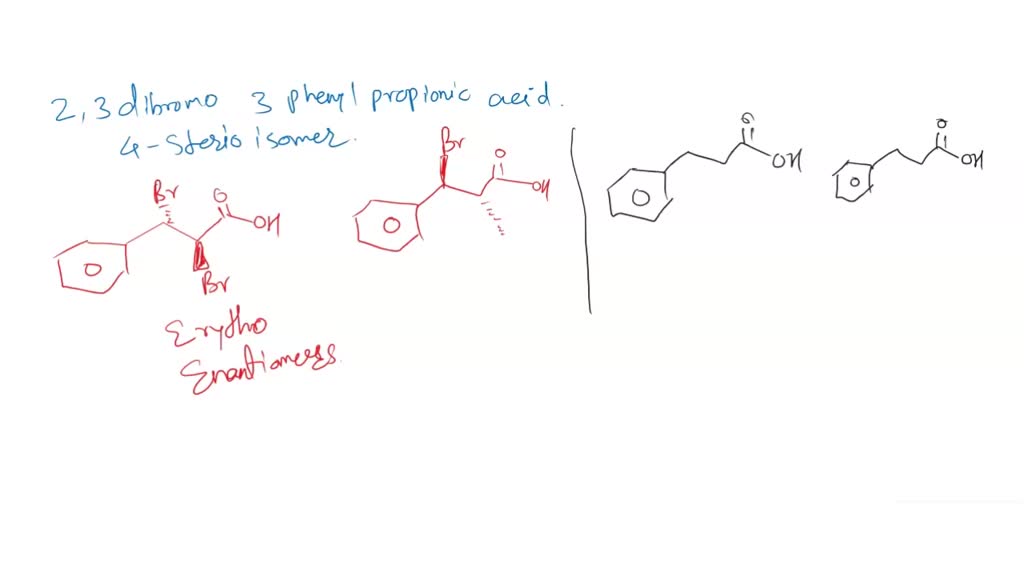 2,3 dibromo 3 phenyl propionic acid.
4-Sterio isomer.
Br O OH
Br
Br O OH
O OH
O OH
Erytho
Enantiomers.